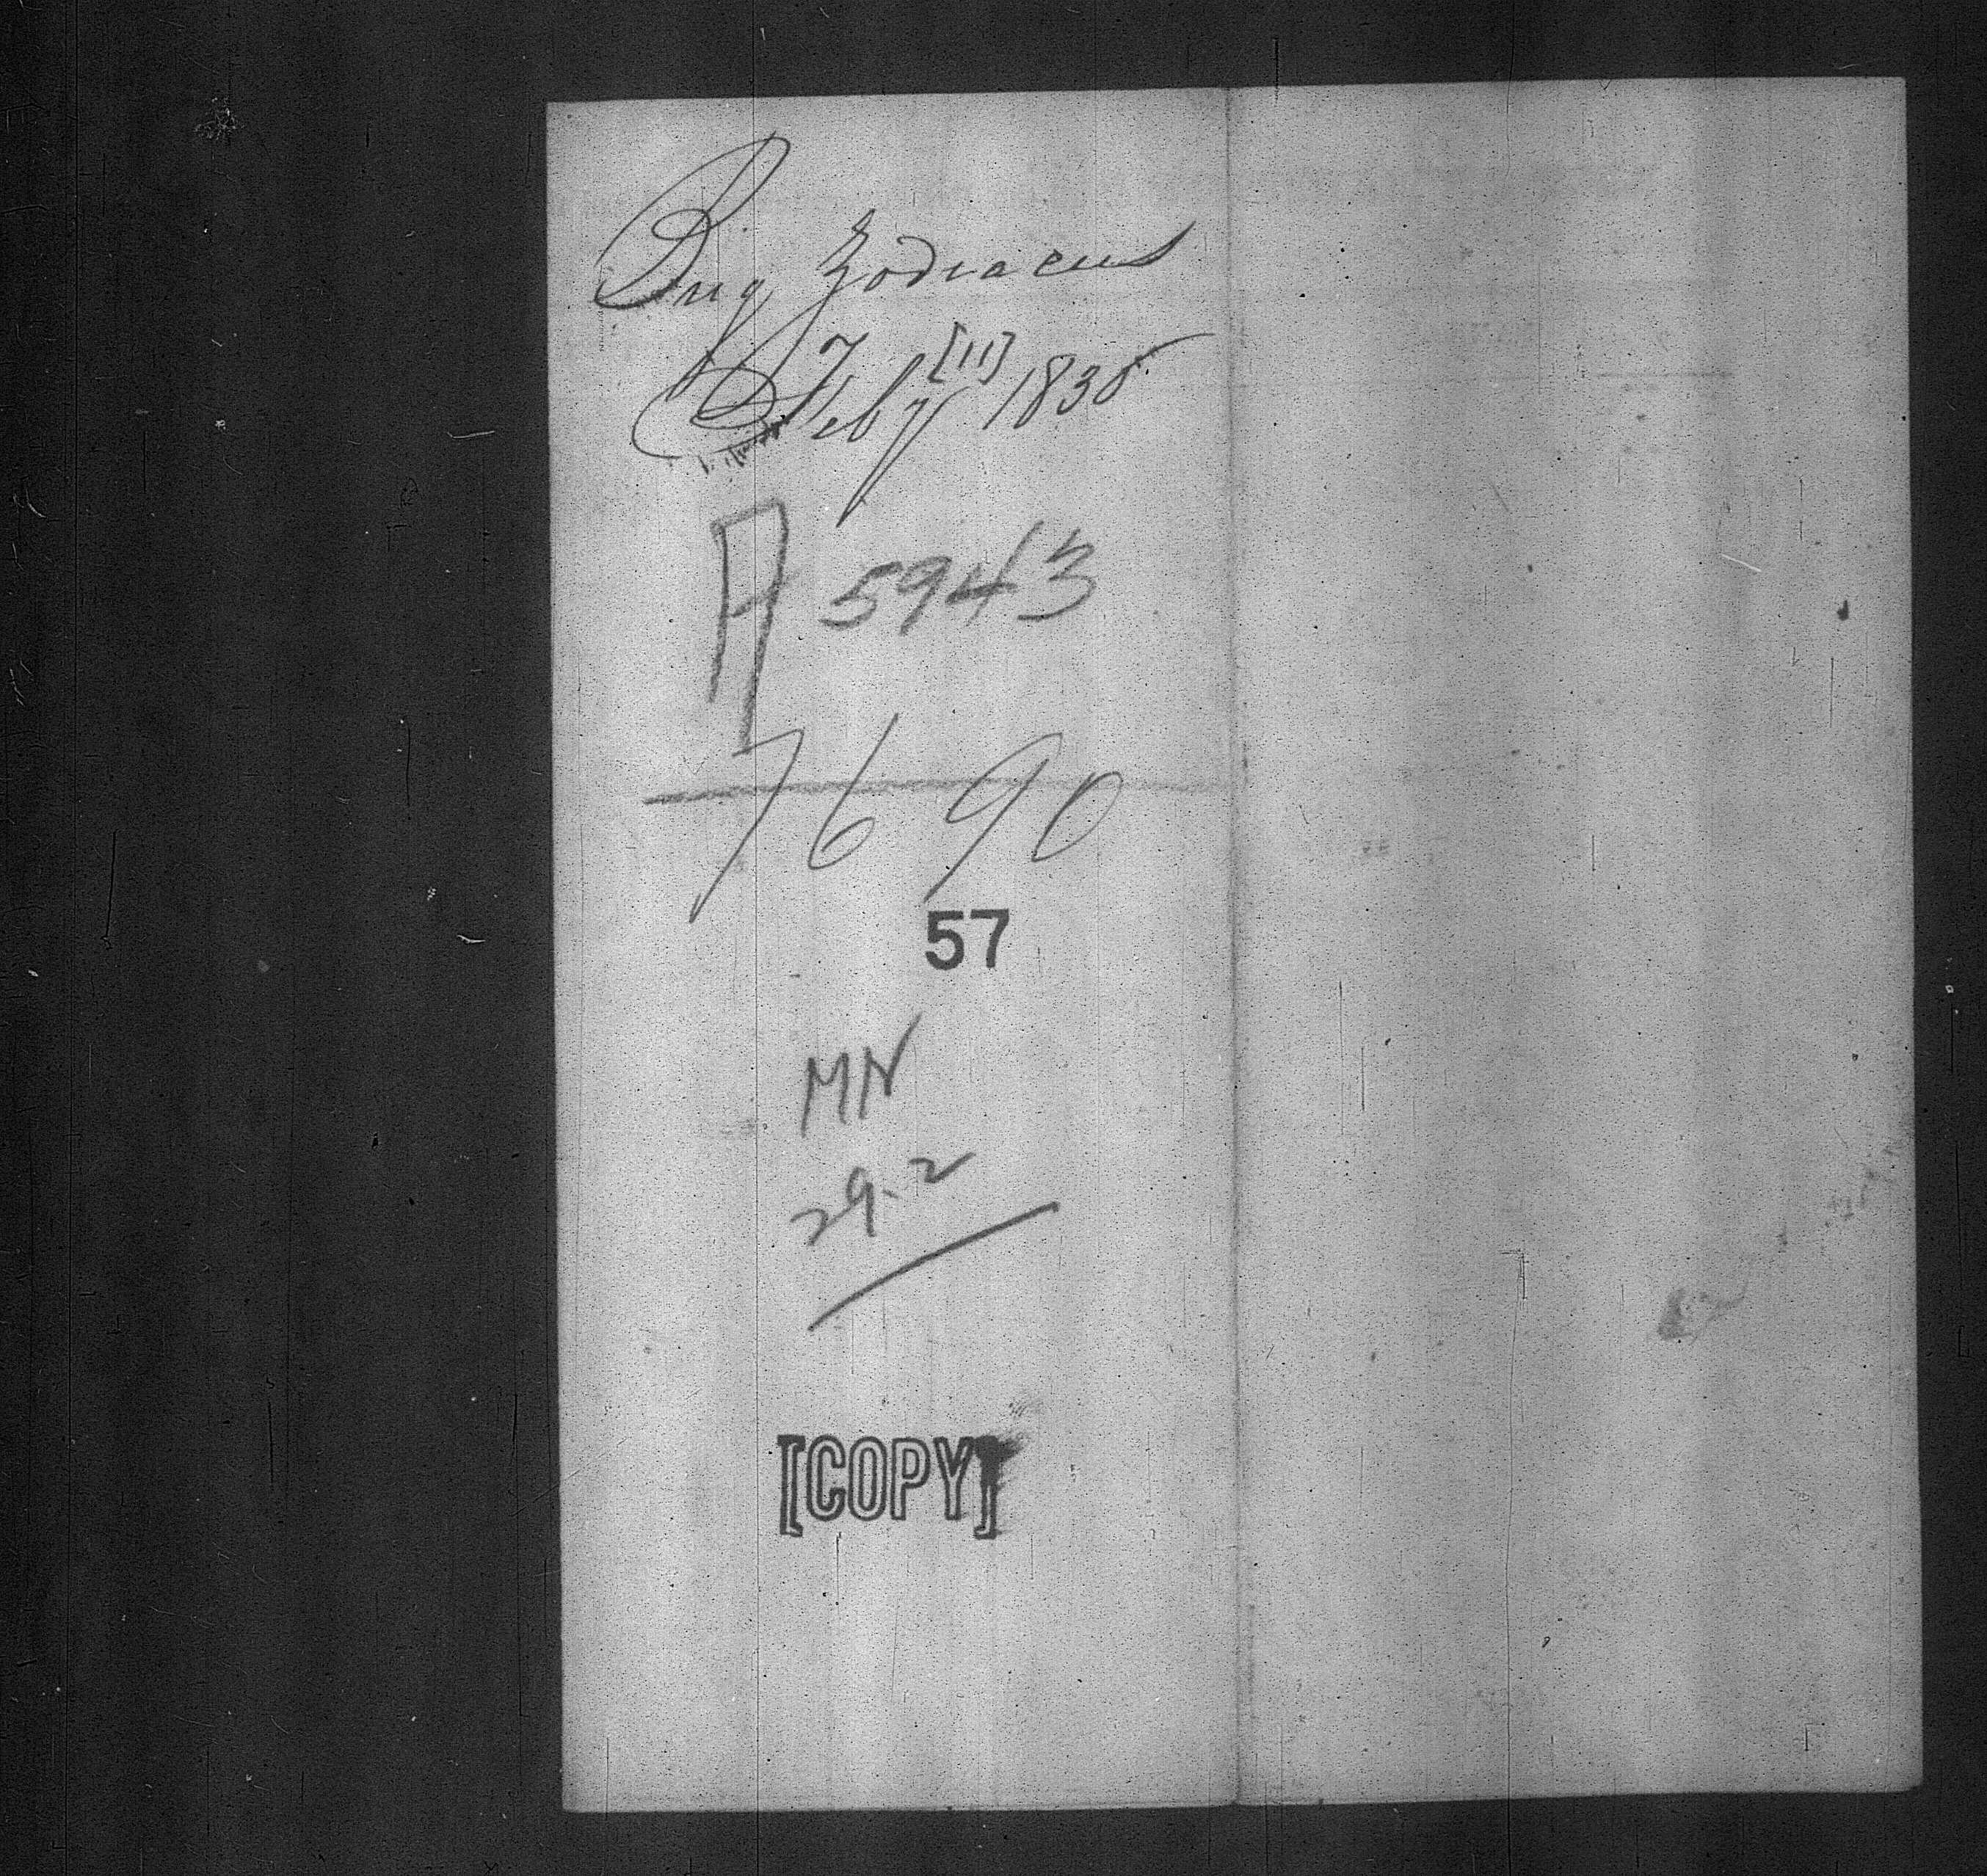 Brig Zodiacus
Feby [11] 1835
A 5943
7690
57
MN
29.2
[COPY]